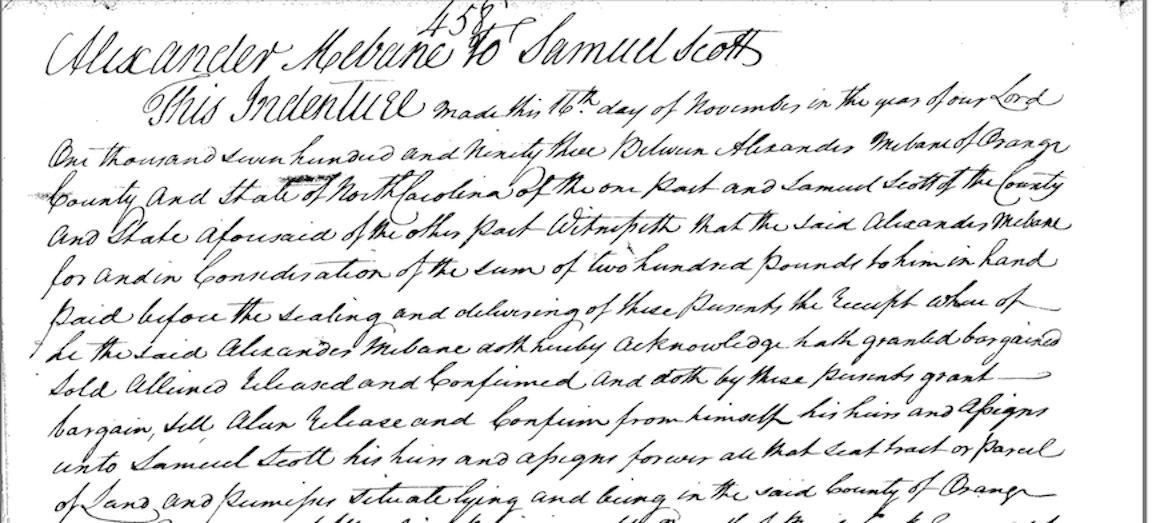 458
Alexander Mebane to Samuel Scott
This Indenture made this 16th day of November in the year of our Lord
One thousand seven hundred and Ninety three Between Alexander Mebane of Orange
County And State of North Carolina of the one Part and Samuel Scott of the County
And State aforesaid of the other Part Witnesseth that the said Alexander Mebane
for and in Consideration of the sum of two hundred Pounds to him in hand
Paid before the sealing and delivering of these Presents the Receipt where of
he the said Alexander Mebane doth hereby Acknowledge hath granted bargained
Sold Aliened Released and Confirmed And doth by these Presents grant
bargain, sell, Alien Release and Confirm from himself his heirs and Assigns
unto Samuel Scott his heirs and assigns forever all that seat tract or Parcel
of Land and Premises situate lying and being in the said County of Orange